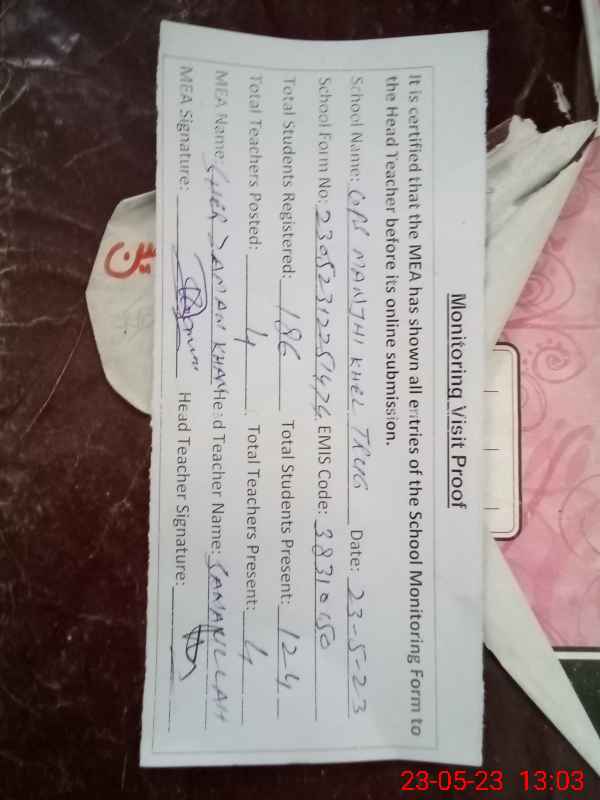 Monitoring Visit Proof
It is certified that the MEA has shown all entries of the School Monitoring Form to
the Head Teacher before its online submission.
School Name: GPS MANJHI KHEL TRUG Date: 23-5-23
School Form No: EMIS Code: 38310150
Total Students Registered: 186 Total Students Present: 124
Total Teachers Posted: 4 Total Teachers Present: 4
MEA Name: SHER ZAMAN KHAN Head Teacher Name: SANAKILLAH
MEA Signature: Head Teacher Signature:
23-05-23 13:03